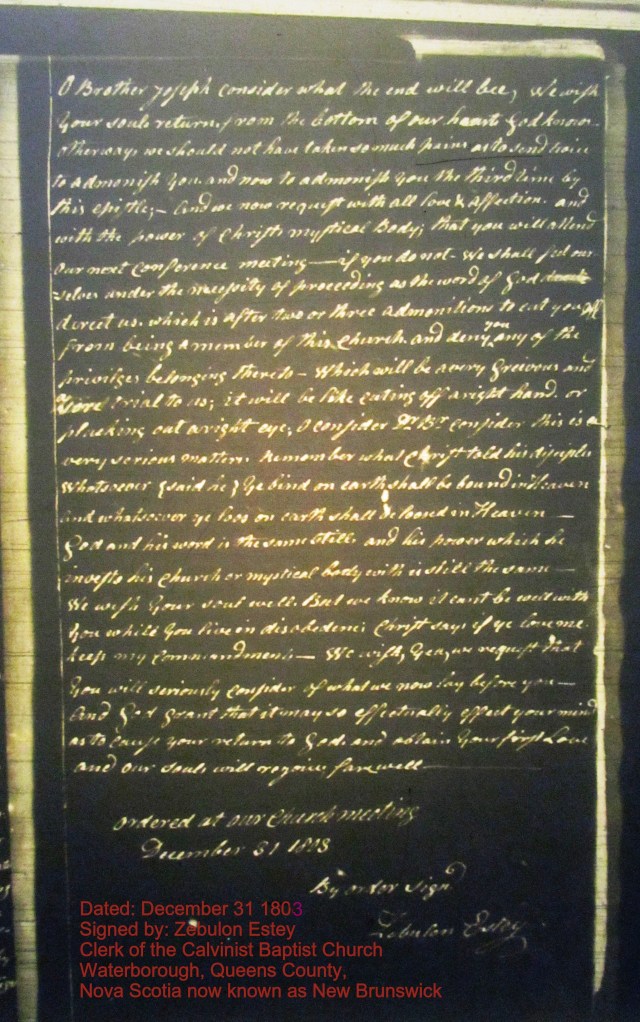 O Brother Joseph consider what the end will bee, We wish
Your souls return, from the bottom of our hearts God knows
otherways we should not have taken so much pains as to send twice
to admonish You and now to admonish you the third time by
this epistle;- And we now request with all love & affection. and
with the power of Christs mystical Body; that you will attend
our next Conference meeting— if you do not- We shall feel our
=selves under the necessity of proceeding as the word of God
direct us. which is after two or three admonitions to cut you off
from being a member of this Church. and deny you any of the
privileges belonging thereto- Which will be a very Greivous and
Sore trial to us; it will be like Cuting off a right hand. or
plucking out a right eye; O consider Dr Br consider this is a
very serious matter. Remember what Christ told his disciples
Whatsoever (said he) Ye bind on earth shall be bound in Heaven
and whatsoever ye loos on earth shall be loosed in Heaven—
God and his word is the same still. and his power which he
invests his Church or mystical body with is still the same—
We wish Your soul well. But we know it cant be well with
You while You live in disobedience Christ says if ye love me
keep my Commandments— We wish, Yea, we request that
You will seriously Consider of what we now lay before you—
And God grant that it may so effectually effect your mind
as to cause your return to God. and obtain Your first Love
and our souls will rejoice, farewell
ordered at our Church meeting
December 31 1803
By order Sign'd
Zebulon Estey
Dated: December 31 1803
Signed by: Zebulon Estey
Clerk of the Calvinist Baptist Church
Waterborough, Queens County,
Nova Scotia now known as New Brunswick